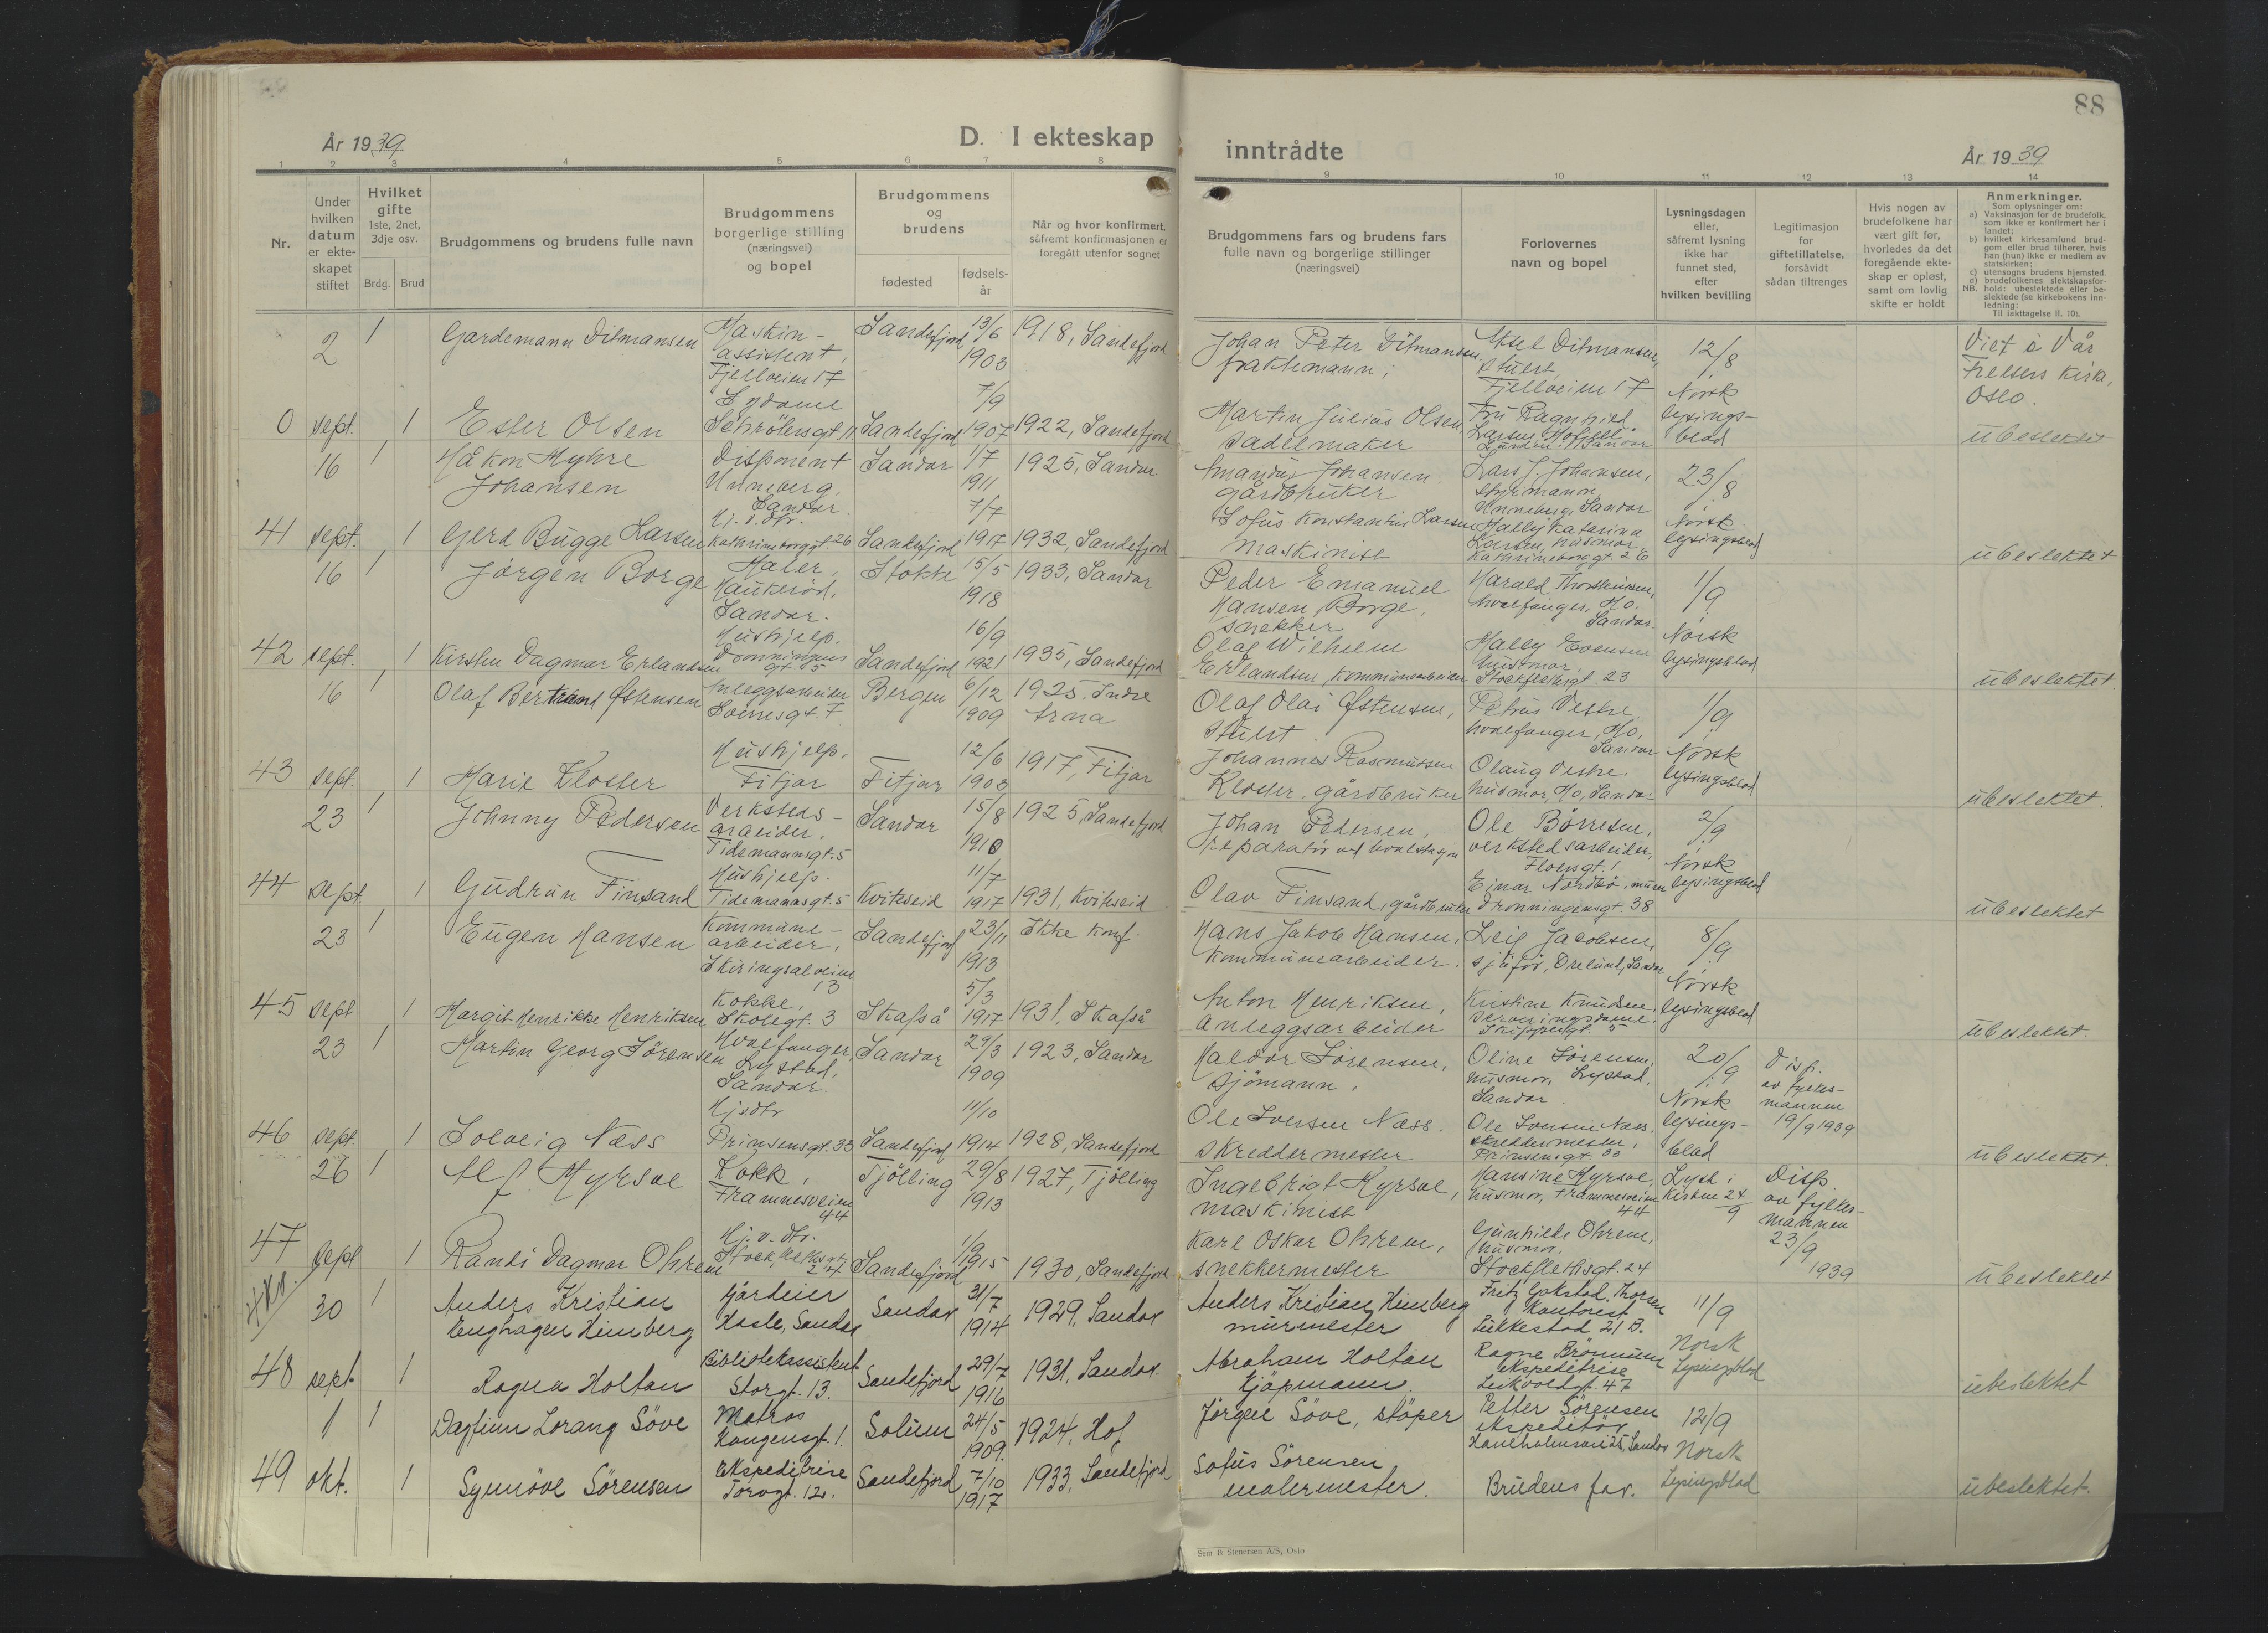 88
År 1939
D. I ekteskap
inntrådte
År 1939
1 2 3 4 5 6 7 8
9 10 11 12 13 14
Nr.
Under hvilken datum er ekte-skapet stiftet
Hvilket gifte
1ste, 2net, 3dje osv.
Brdg. Brud
Brudgommens og brudens fulle navn
Brudgommens borgerlige stilling (næringsvei) og bopel
Brudgommens og brudens
fødested
fødsels-år
Når og hvor konfirmert, såfremt konfirmasjonen er foregått utenfor sognet
Brudgommens fars og brudens fars fulle navn og borgerlige stillinger (næringsvei)
Forlovernes navn og bopel
Lysningsdagen eller, såfremt lysning ikke har funnet sted, efter hvilken bevilling
Legitimasjon for giftetillatelse, forsåvidt sådan tiltrenges
Hvis nogen av brudefolkene har vært gift før, hvorledes da det foregående ekte-skap er opløst, samt om lovlig skifte er holdt
Anmerkninger.
Som oplysninger om:
a) Vaksinasjon for de brudefolk, som ikke er konfirmert her i landet;
b) hvilket kirkesamfund brud-gom eller brud tilhører, hvis han (hun) ikke er medlem av statskirken;
c) utensogns brudens hjemsted.
d) brudefolkenes slektskapsfor-hold: ubeslektede eller be-slektede (se kirkebokens inn-ledning:
NB. Til iakttagelse II. 10).
2 1 Gardemann Ditmansen Maskin-assistent, Fjellveien 17 Sandefjord 13/6 1903 1918, Sandefjord Johan Peter Ditmansen, fraktemann; Aksel Ditmansen, stuert, Fjellveien 17 12/8 Norsk lysings-blad Viet i Vår Frelsers Kirke, Oslo.
0 sept. 1 Ester Olsen Sydame Schrøtersgt. 11. Sandefjord 7/9 1907 1922, Sandefjord Martin Julius Olsen, sadelmaker Fru Ragnhild Larsen, Sandar ubeslektet
16 1 Håkon Myhre Johansen Disponent Unneberg, Sandar. Sandar 1/7 1911 1925, Sandar Amandus Johansen gårdbruker Lars J. Johansen, styrmann, Unneberg, Sandar 23/8 Norsk lysingsblad
41 sept. 1 Gerd Bugge Larsen Hj. v. dtr. Kathrineborggt. 26 Sandefjord 7/7 1917 1932, Sandefjord Sofus Konstantin Larsen Maskinist Hally Katarina Larsen, husmor Kathrineborggt. 26 ubeslektet
16 1 Jørgen Borge Maler, Haukerød, Sandar. Stokke 15/5 1918 1933, Sandar Peder Emanuel Hansen Borge, snekker Harald Thorsteinsen, hvalfanger, Mo, Sandar. 1/9 Norsk lysingsblad
42 sept. 1 Kirsten Dagmar Erlandsen Hushjelp. Dronningens gt. 5 Sandefjord 16/9 1921 1935, Sandefjord Olaf Wilhelm Erlandsen, kommunearbeider Hally Evensen husmor, Stockflethsgt. 23 ubeslektet.
16 1 Olaf Bertrand Østensen Anleggsarbeider Soenesgt. 7. Bergen 6/12 1909 1925. Indre Arna Olaf Olai Østensen, Stuert Petrus Vestre hvalfanger, Mo, Sandar 1/9 Norsk lysingsblad
43 sept. 1 Marie Kloster Hushjelp, Fitjar Fitjar 12/6 1903 1917, Fitjar Johannes Rasmussen Kloster, gårdbruker Olaug Vestre. husmor, Mo, Sandar ubeslektet.
23 1 Johnny Pedersen Verksteds-arbeider, Tidemannsgt. 5 Sandar 15/8 1910 1925, Sandefjord Johan Pedersen, reparatør ved hvalstasjon Ole Børresen, verkstedsarbeider, Floensgt. 1 2/9 Norsk lysingsblad
44 sept. 1 Gudrun Finsand Hushjelp. Tidemannsgt. 5 Kviteseid 11/7 1917 1931, Kviteseid Olav Finsand, gårdbruker Ejnar Nordbø, murer Dronningensgt. 38 ubeslektet
23 1 Eugen Hansen Kommune-arbeider, Skiringsalveien 13 Sandefjord 23/11 1913 Ikke konf. Hans Jakob Hansen, kommunearbeider. Leif Jacobsen, sjåfør, Orelund, Sandar 8/9 Norsk lysingsblad
45 sept 1 Margit Henrikke Henriksen Kokke, Skolegt. 3 Skafså 5/3 1917 1931, Skafså Anton Henriksen, anleggsarbeider Kristine Knudsen, serveringsdame. Skippergt. 5 ubeslektet.
23 1 Martin Georg Sørensen Hvalfanger, Lystad, Sandar. Sandar 29/3 1909 1923, Sandar Haldor Sørensen, sjømann, Oline Sørensen, husmor, Lystad, Sandar. 20/9 Norsk lysings-blad Disp. av fylkes-mannen 19/9 1939
46 sept. 1 Solveig Næss Hjs.dtr Prinsensgt. 33 Sandefjord 11/10 1914 1928, Sandefjord Ole Iversen Næss. skreddermester Ole Iversen Næss. skreddermester, Prinsensgt. 33 ubeslektet.
26 1 Alf Myrsve Kokk, Framnesveien 44 Tjølling 29/8 1913 1927, Tjølling Ingebrigt Myrsve, maskinist Hansine Myrsve, husmor, Framnesveien 44 Lyst i kirken 24/9 Disp. av fylkes-mannen 23/9 1939
47 sept 1 Randi Dagmar Ohrem Hj. v. dtr. Stockflethsgt. 24 Sandefjord 1/9 1915 1930, Sandefjord Karl Oskar Ohrem, snekkermester Gunhilde Ohrem, husmor. Stockflethsgt. 24 ubeslektet
30 1 Anders Kristian Enghagen Himberg Gårdeier Hasle, Sandar Sandar 31/7 1914 1929, Sandar Anders Kristian Himberg murmester Fritz Gokstad Thorsen Kontorist Lükkestad 21 B. 11/9 Norsk Lysingsblad
48 sept 1 Ragna Holtan Bibliotekassistent Storgt. 13. Sandefjord 29/7 1916 1931, Sandar. Abraham Holtan kjøpmann. Ragne Brønnum ekspeditrise Leikvollgt. 47 ubeslektet
1 1 Dagfinn Lorang Söve Matros Kongensgt. 1. Solum 24/5 1909. 1924, Hof Jørgen Söve, støper Petter Sörensen ekspeditör Haneholmveien 25, Sandar 12/9 Norsk Lysingsblad
49 okt. 1 Synnöve Sörensen Ekspeditrise Torvgt. 12. Sandefjord 7/10 1917 1933, Sandefjord Sofus Sörensen malermester. Brudens far. ubeslektet.
Sem & Stenersen A/S, Oslo